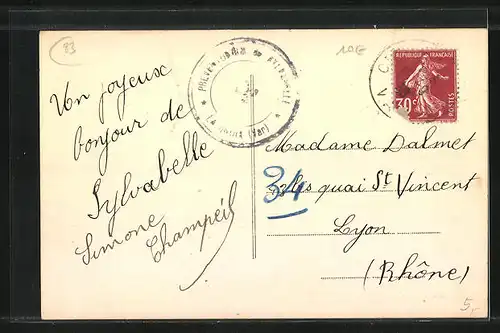 83
10E
Un joyeux
bonjour de
Sylvabelle
Simone
Champeil
PREVENTORIUM de SYLVABELLE
(Var)
REPUBLIQUE FRANÇAISE
30c
POSTES
Madame Dalmet
34 quai St Vincent
Lyon
(Rhône)
5,-